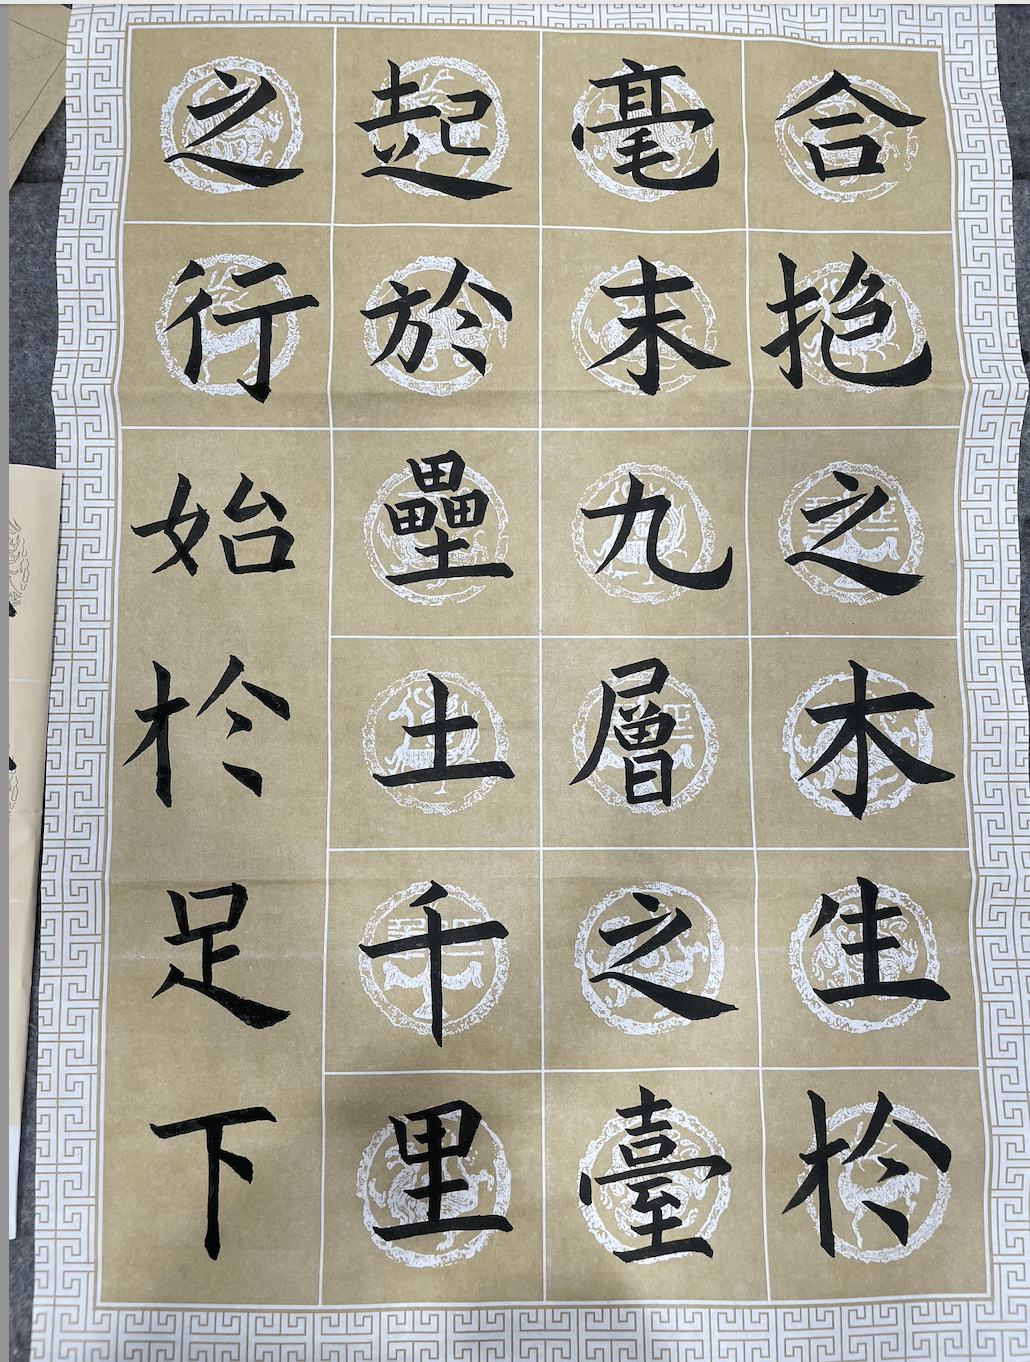 合抱之木生扵
毫末九層之臺
起於壘土千里
之行始扵足下